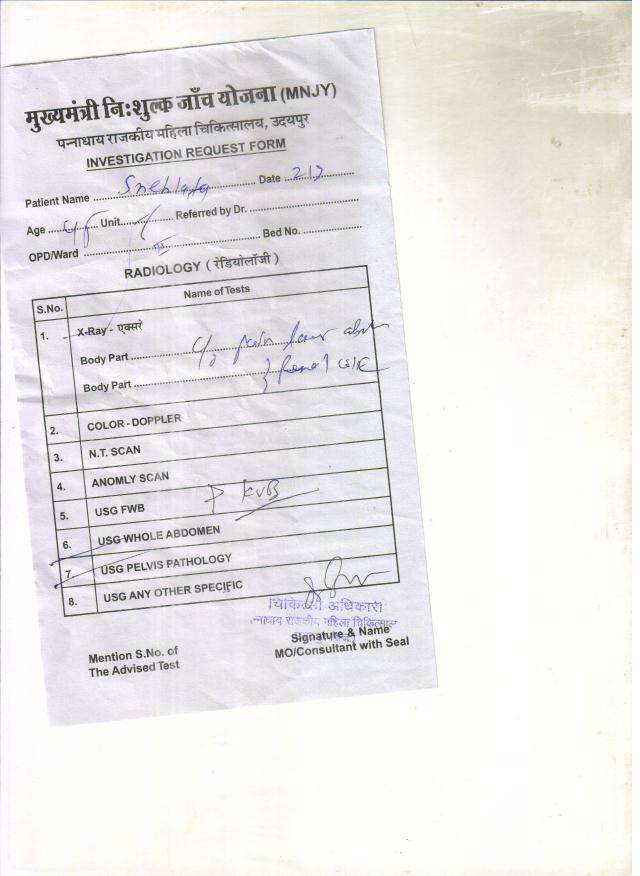 मुख्यमंत्री निःशुल्क जाँच योजना (MNJY)
पन्नाधाय राजकीय महिला चिकित्सालय, उदयपुर
INVESTIGATION REQUEST FORM
Patient Name Snehlata Date 2/3
Age Unit Referred by Dr.
OPD/Ward Bed No.
RADIOLOGY ( रेडियोलॉजी )
S.No. Name of Tests
1. X-Ray - एक्सरे
Body Part c/o pain lower abd
Body Part
2. COLOR - DOPPLER
3. N.T. SCAN
4. ANOMLY SCAN
KUB
5. USG FWB
6. USG WHOLE ABDOMEN
7. USG PELVIS PATHOLOGY
8. USG ANY OTHER SPECIFIC
चिकित्सा अधिकारी
पन्नाधाय राजकीय महिला चिकित्सालय
Mention S.No. of
The Advised Test
Signature & Name
MO/Consultant with Seal